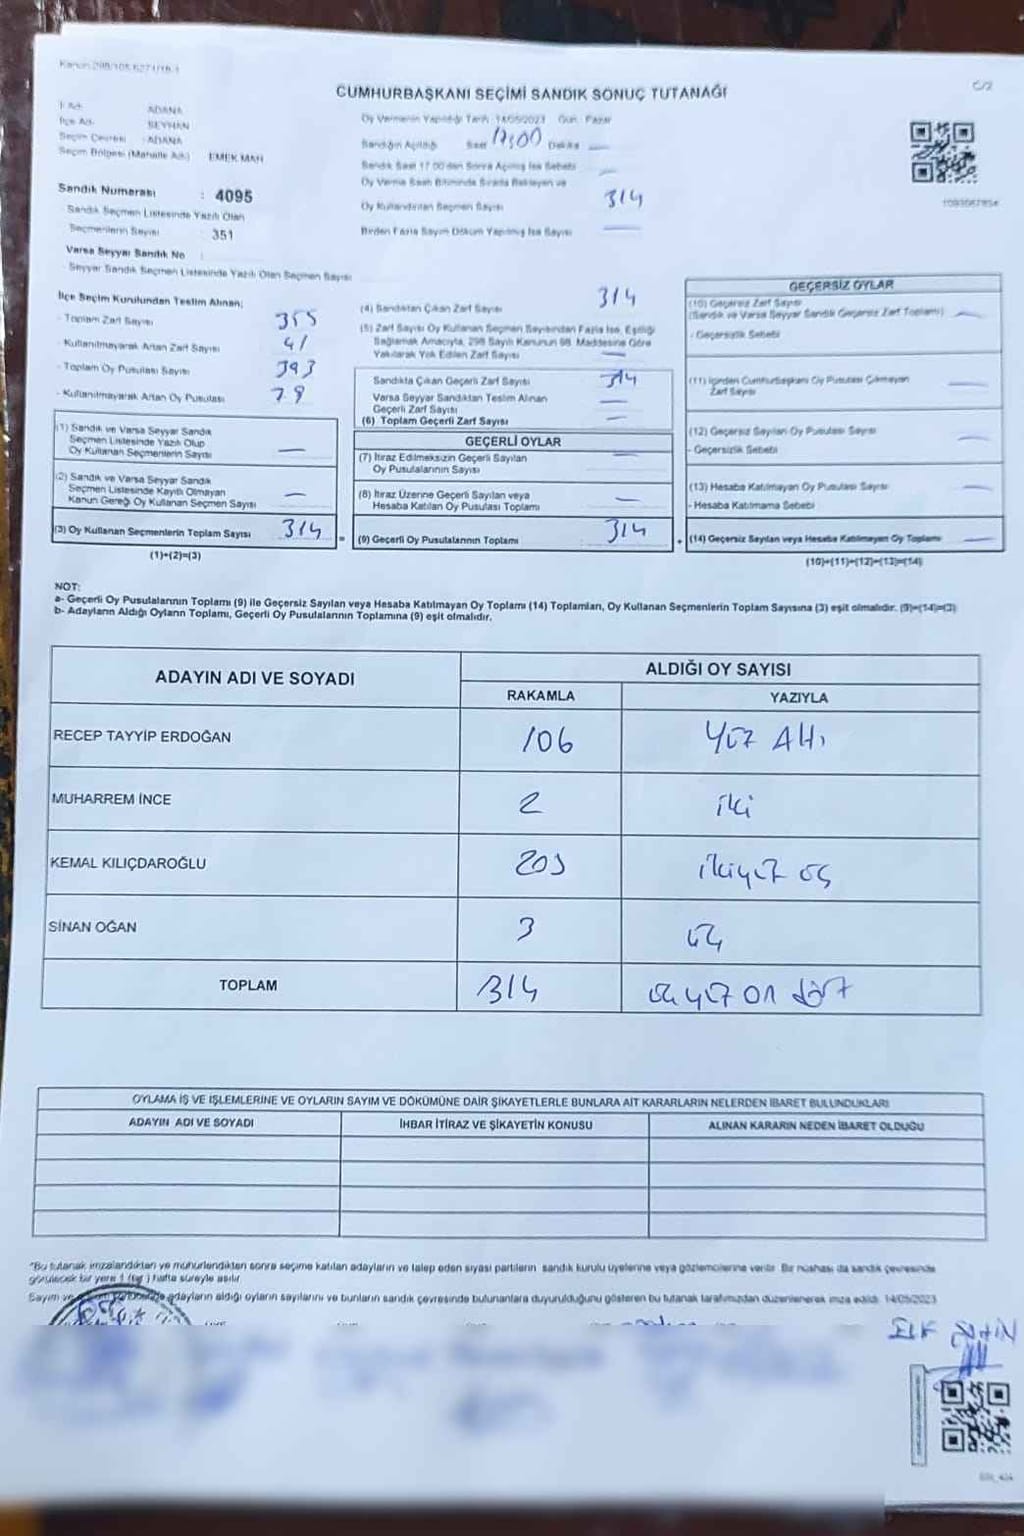 CUMHURBAŞKANI SEÇİMİ SANDIK SONUÇ TUTANAĞI
C/2
İl Adı : ADANA
İlçe Adı : SEYHAN
Seçim Çevresi : ADANA
Seçim Bölgesi (Mahalle Adı) : EMEK MAH
Sandık Numarası : 4095
Sandık Seçmen Listesinde Yazılı Olan
Seçmenlerin Sayısı : 351
Varsa Seyyar Sandık No :
Seyyar Sandık Seçmen Listesinde Yazılı Olan Seçmen Sayısı
Oy Vermenin Yapıldığı Tarih : 14/05/2023 Gün : Pazar
Sandığın Açıldığı Saat 17:00 Dakika —
Sandık Saat 17.00'den Sonra Açılmış İse Sebebi —
Oy Verme Saati Bitiminde Sırada Bekleyen ve
Oy Kullandırılan Seçmen Sayısı 314
Birden Fazla Sayım Döküm Yapılmış İse Sayısı —
İlçe Seçim Kurulundan Teslim Alınan;
- Toplam Zarf Sayısı 355
- Kullanılmayarak Artan Zarf Sayısı 41
- Toplam Oy Pusulası Sayısı 393
- Kullanılmayarak Artan Oy Pusulası 79
(1) Sandık ve Varsa Seyyar Sandık
Seçmen Listesinde Yazılı Olup
Oy Kullanan Seçmenlerin Sayısı —
(2) Sandık ve Varsa Seyyar Sandık
Seçmen Listesinde Kayıtlı Olmayan
Kanun Gereği Oy Kullanan Seçmen Sayısı —
(3) Oy Kullanan Seçmenlerin Toplam Sayısı 314
(1)+(2)=(3)
(4) Sandıktan Çıkan Zarf Sayısı 314
(5) Zarf Sayısı Oy Kullanan Seçmen Sayısından Fazla İse, Eşitliği
Sağlamak Amacıyla, 298 Sayılı Kanunun 98. Maddesine Göre
Yakılarak Yok Edilen Zarf Sayısı —
Sandıkta Çıkan Geçerli Zarf Sayısı 314
Varsa Seyyar Sandıktan Teslim Alınan
Geçerli Zarf Sayısı —
(6) Toplam Geçerli Zarf Sayısı —
GEÇERLİ OYLAR
(7) İtiraz Edilmeksizin Geçerli Sayılan
Oy Pusulalarının Sayısı —
(8) İtiraz Üzerine Geçerli Sayılan veya
Hesaba Katılan Oy Pusulası Toplamı —
(9) Geçerli Oy Pusulalarının Toplamı 314
GEÇERSİZ OYLAR
(10) Geçersiz Zarf Sayısı
(Sandık ve Varsa Seyyar Sandık Geçersiz Zarf Toplamı) —
- Geçersizlik Sebebi
(11) İçinden Cumhurbaşkanı Oy Pusulası Çıkmayan
Zarf Sayısı —
(12) Geçersiz Sayılan Oy Pusulası Sayısı —
- Geçersizlik Sebebi
(13) Hesaba Katılmayan Oy Pusulası Sayısı —
- Hesaba Katılmama Sebebi
(14) Geçersiz Sayılan veya Hesaba Katılmayan Oy Toplamı —
(10)+(11)+(12)+(13)=(14)
NOT:
a- Geçerli Oy Pusulalarının Toplamı (9) ile Geçersiz Sayılan veya Hesaba Katılmayan Oy Toplamı (14) Toplamları, Oy Kullanan Seçmenlerin Toplam Sayısına (3) eşit olmalıdır. (9)+(14)=(3)
b- Adayların Aldığı Oyların Toplamı, Geçerli Oy Pusulalarının Toplamına (9) eşit olmalıdır.
ADAYIN ADI VE SOYADI
ALDIĞI OY SAYISI
RAKAMLA YAZIYLA
RECEP TAYYİP ERDOĞAN 106 Yüz Altı
MUHARREM İNCE 2 iki
KEMAL KILIÇDAROĞLU 203 ikiyüz üç
SİNAN OĞAN 3 üç
TOPLAM 314 üç yüz on dört
OYLAMA İŞ VE İŞLEMLERİNE VE OYLARIN SAYIM VE DÖKÜMÜNE DAİR ŞİKAYETLERLE BUNLARA AİT KARARLARIN NELERDEN İBARET BULUNDUKLARI
ADAYIN ADI VE SOYADI İHBAR İTİRAZ VE ŞİKAYETİN KONUSU ALINAN KARARIN NEDEN İBARET OLDUĞU
*Bu tutanak imzalandıktan ve mühürlendikten sonra seçime katılan adayların ve talep eden siyasi partilerin sandık kurulu üyelerine veya gözlemcilerine verilir. Bir nüshası da sandık çevresinde
görülecek bir yere 1 (bir) hafta süreyle asılır.
Sayım ve adayların aldığı oyların sayılarını ve bunların sandık çevresinde bulunanlara duyurulduğunu gösteren bu tutanak tarafımızdan düzenlenerek imza edildi. 14/05/2023